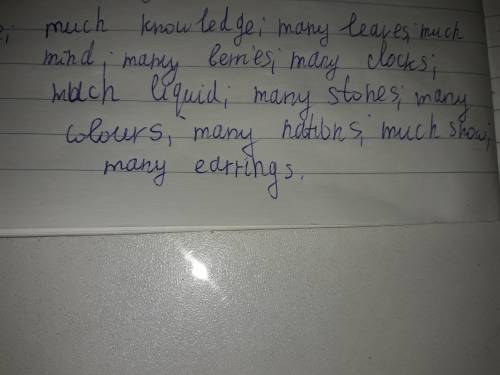 much knowledge; many leaves; much
mind; many berries; many clocks;
much liquid; many stones; many
colours, many nations; much snow;
many earrings.